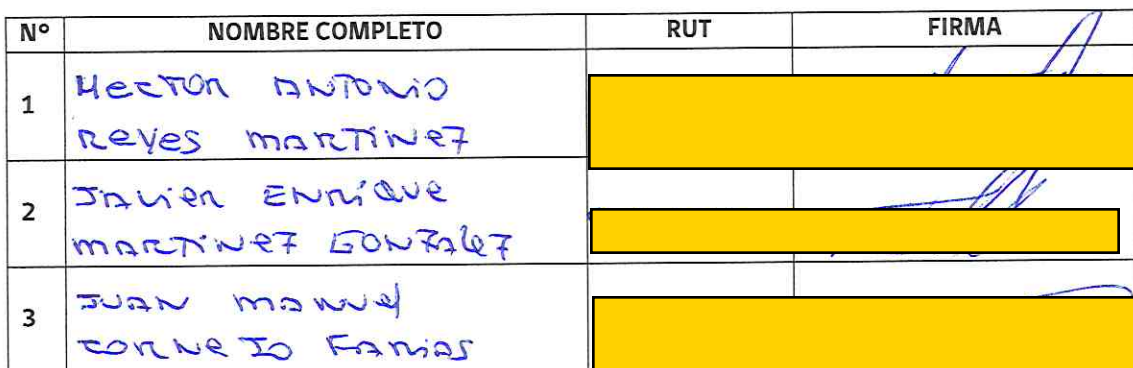 N° NOMBRE COMPLETO RUT FIRMA
1 HECTOR ANTONIO
REYES MARTINEZ
2 JAVIER ENRÍQUE
MARTINEZ GONZALEZ
3 JUAN MANUEL
CORNEJO FARIAS